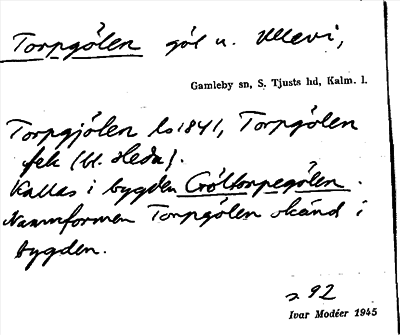 Torpgölen göl u. Ullevi,
Gamleby sn, S. Tjusts hd, Kalm. l.
Torpgjölen ls 1841, Torpgölen
fek (bl. Heda).
Kallas i bygden Cröltorpegölen.
Namnformen Torpgölen okänd i
bygden.
s 92
Ivar Modéer 1945